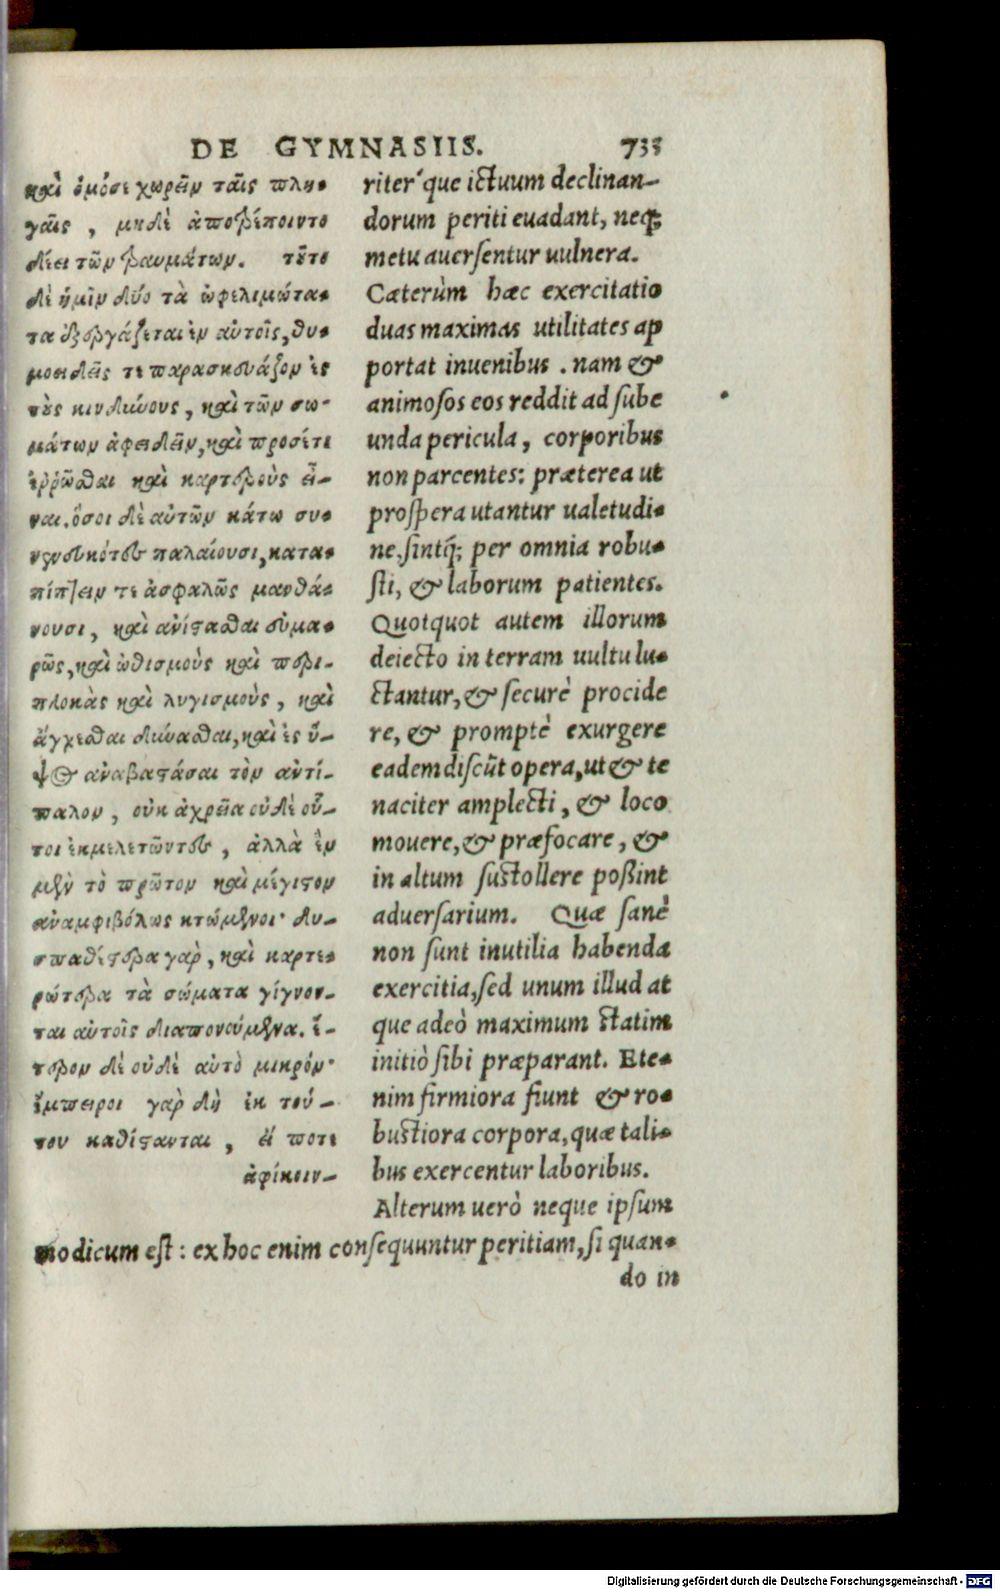 DE GYMNASIIS. 735
καὶ ὁμόσε χωρεῖν ταῖς πλη-
γαῖς, μηδὲ ἀποτρέποιντο
δέει τῶν τραυμάτων. τοῦτο
δὲ ἡμῖν δύο τὰ ὠφελιμώτα-
τα ἐξεργάζεται ἐν αὐτοῖς, θυ-
μοειδεῖς τε παρασκευάζον ἐς
τοὺς κινδύνους, καὶ τῶν σω-
μάτων ἀφειδεῖν, καὶ προσέτι
ἐῤῥῶσθαι καὶ καρτεροὺς εἶ-
ναι. ὅσοι δὲ αὐτῶν κάτω συ-
νενευκότες παλαίουσι, κατα-
πίπτειν τε ἀσφαλῶς μανθά-
νουσι, καὶ ἀνίστασθαι εὐμα-
ρῶς, καὶ ὠθισμοὺς καὶ περι-
πλοκὰς καὶ λυγισμοὺς, καὶ
ἄγχεσθαι δύνασθαι, καὶ ἐς ὕ-
ψος ἀναβαστάσαι τὸν ἀντί-
παλον, οὐκ ἀχρεῖα οὐδὲ οὗ-
τοι ἐκμελετῶντες, ἀλλὰ ἓν
μὲν τὸ πρῶτον καὶ μέγιστον
ἀναμφιβόλως κτώμενοι· δυ-
σπαθέστερα γὰρ, καὶ καρτε-
ρώτερα τὰ σώματα γίγνον-
ται αὐτοῖς διαπονούμενα. ἕ-
τερον δέ οὐδὲ αὐτὸ μικρόν·
ἔμπειροι γὰρ δὴ ἐκ τού-
του καθίστανται, εἴ ποτε
ἀφίκοιν-
riter´que ictuum declinan-
dorum periti euadant, neq;
metu auersentur uulnera.
Cæterùm hæc exercitatio
duas maximas utilitates ap
portat inuenibus. nam &
animosos eos reddit ad sube
unda pericula, corporibus
non parcentes: præterea ut
prospera utantur ualetudi-
ne. sintq́; per omnia robu-
sti, & laborum patientes.
Quotquot autem illorum
deiecto in terram uultu lu-
ctantur, & securè procide
re, & promptè exurgere
eadem discũt opera, ut & te
naciter amplecti, & loco
mouere, & præfocare, &
in altum sustollere poßint
aduersarium. Quæ sanè
non sunt inutilia habenda
exercitia, sed unum illud at
que adeò maximum statim
initiò sibi præparant. Ete-
nim firmiora fiunt & ro-
bustiora corpora, quæ tali-
bus exercentur laboribus.
Alterum uerò neque ipsum
modicum est: ex hoc enim consequuntur peritiam, si quan-
do in
Digitalisierung gefördert durch die Deutsche Forschungsgemeinschaft - DFG